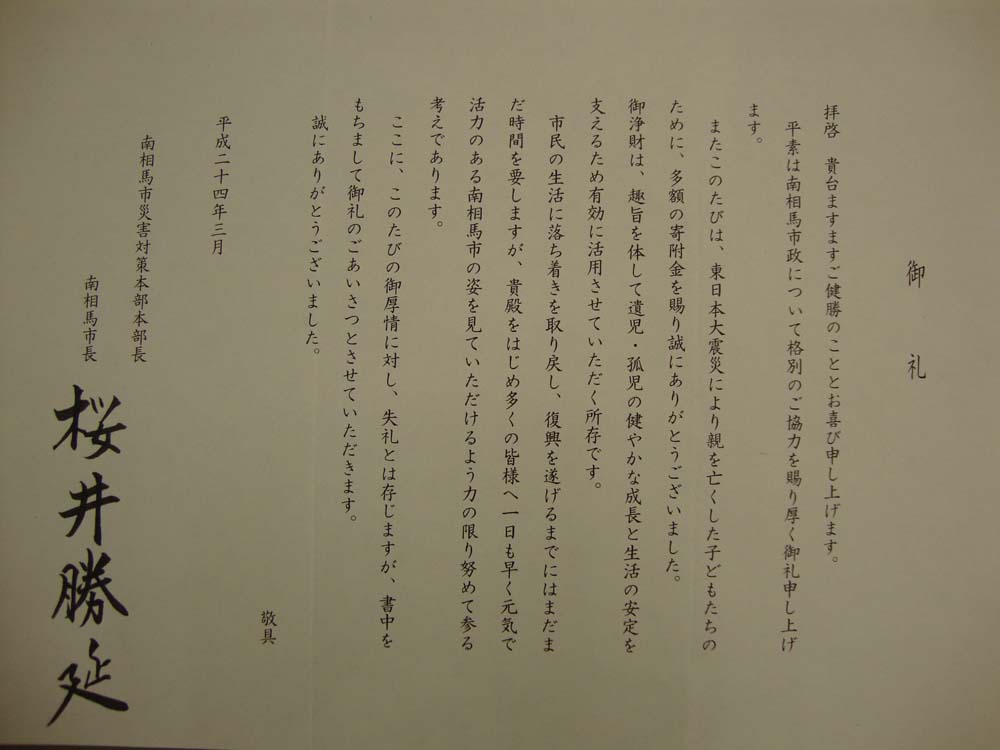 御礼
拝啓 貴台ますますご健勝のこととお喜び申し上げます。
平素は南相馬市政について格別のご協力を賜り厚く御礼申し上げ
ます。
またこのたびは、東日本大震災により親を亡くした子どもたちの
ために、多額の寄附金を賜り誠にありがとうございました。
御浄財は、趣旨を体して遺児・孤児の健やかな成長と生活の安定を
支えるため有効に活用させていただく所存です。
市民の生活に落ち着きを取り戻し、復興を遂げるまでにはまだま
だ時間を要しますが、貴殿をはじめ多くの皆様へ一日も早く元気で
活力のある南相馬市の姿を見ていただけるよう力の限り努めて参る
考えであります。
ここに、このたびの御厚情に対し、失礼とは存じますが、書中を
もちまして御礼のごあいさつとさせていただきます。
誠にありがとうございました。
敬具
平成二十四年三月
南相馬市災害対策本部本部長
南相馬市長 桜井勝延